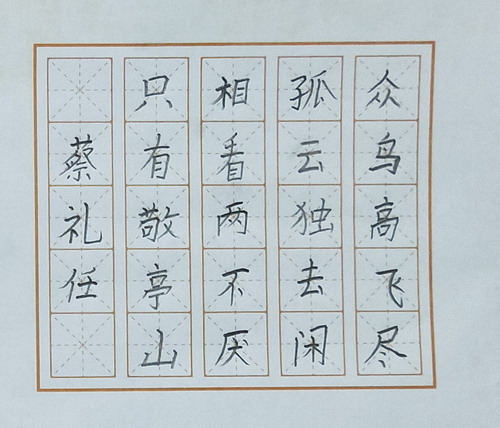 众鸟高飞尽
孤云独去闲
相看两不厌
只有敬亭山
蔡礼任